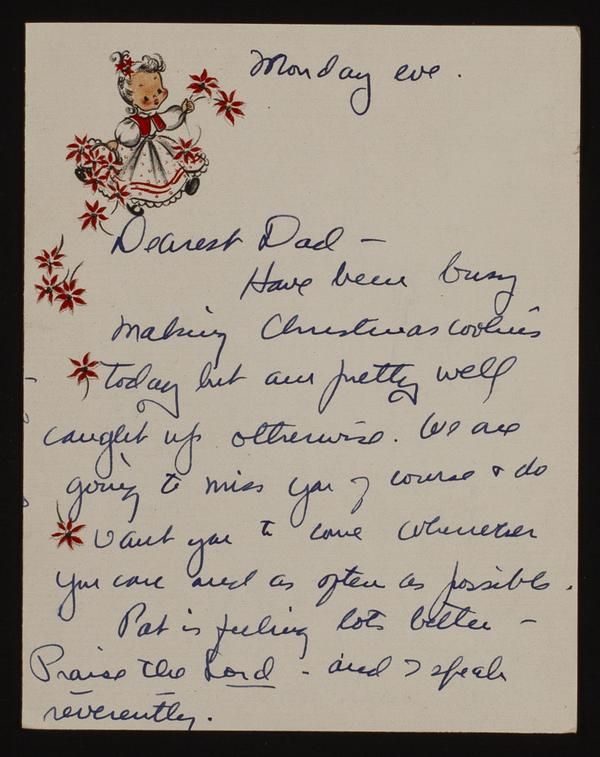 Monday eve.
Dearest Dad –
Have been busy
making Christmas cookies
today but am pretty well
caught up otherwise. We are
going to miss you of course & do
want you to come whenever
you can and as often as possible.
Pat is feeling lots better –
Praise the Lord - and I speak
reverently.